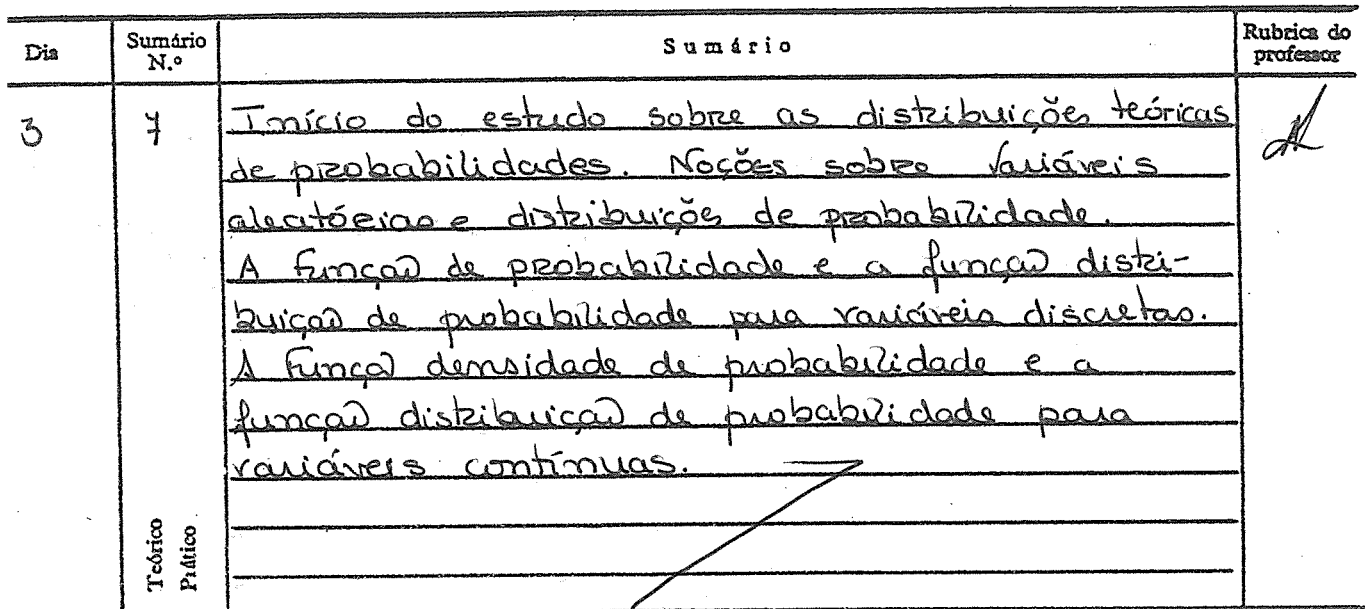 Dia Sumário N.º Sumário Rubrica do professor
3 7 Início do estudo sobre as distribuições teóricas
de probabilidades. Noções sobre variáveis
aleatórias e distribuições de probabilidade.
A função de probabilidade e a função distri-
buição de probabilidade para variáveis discretas.
A função densidade de probabilidade e a
função distribuição de probabilidade para
variáveis contínuas.
Teórico
Prático